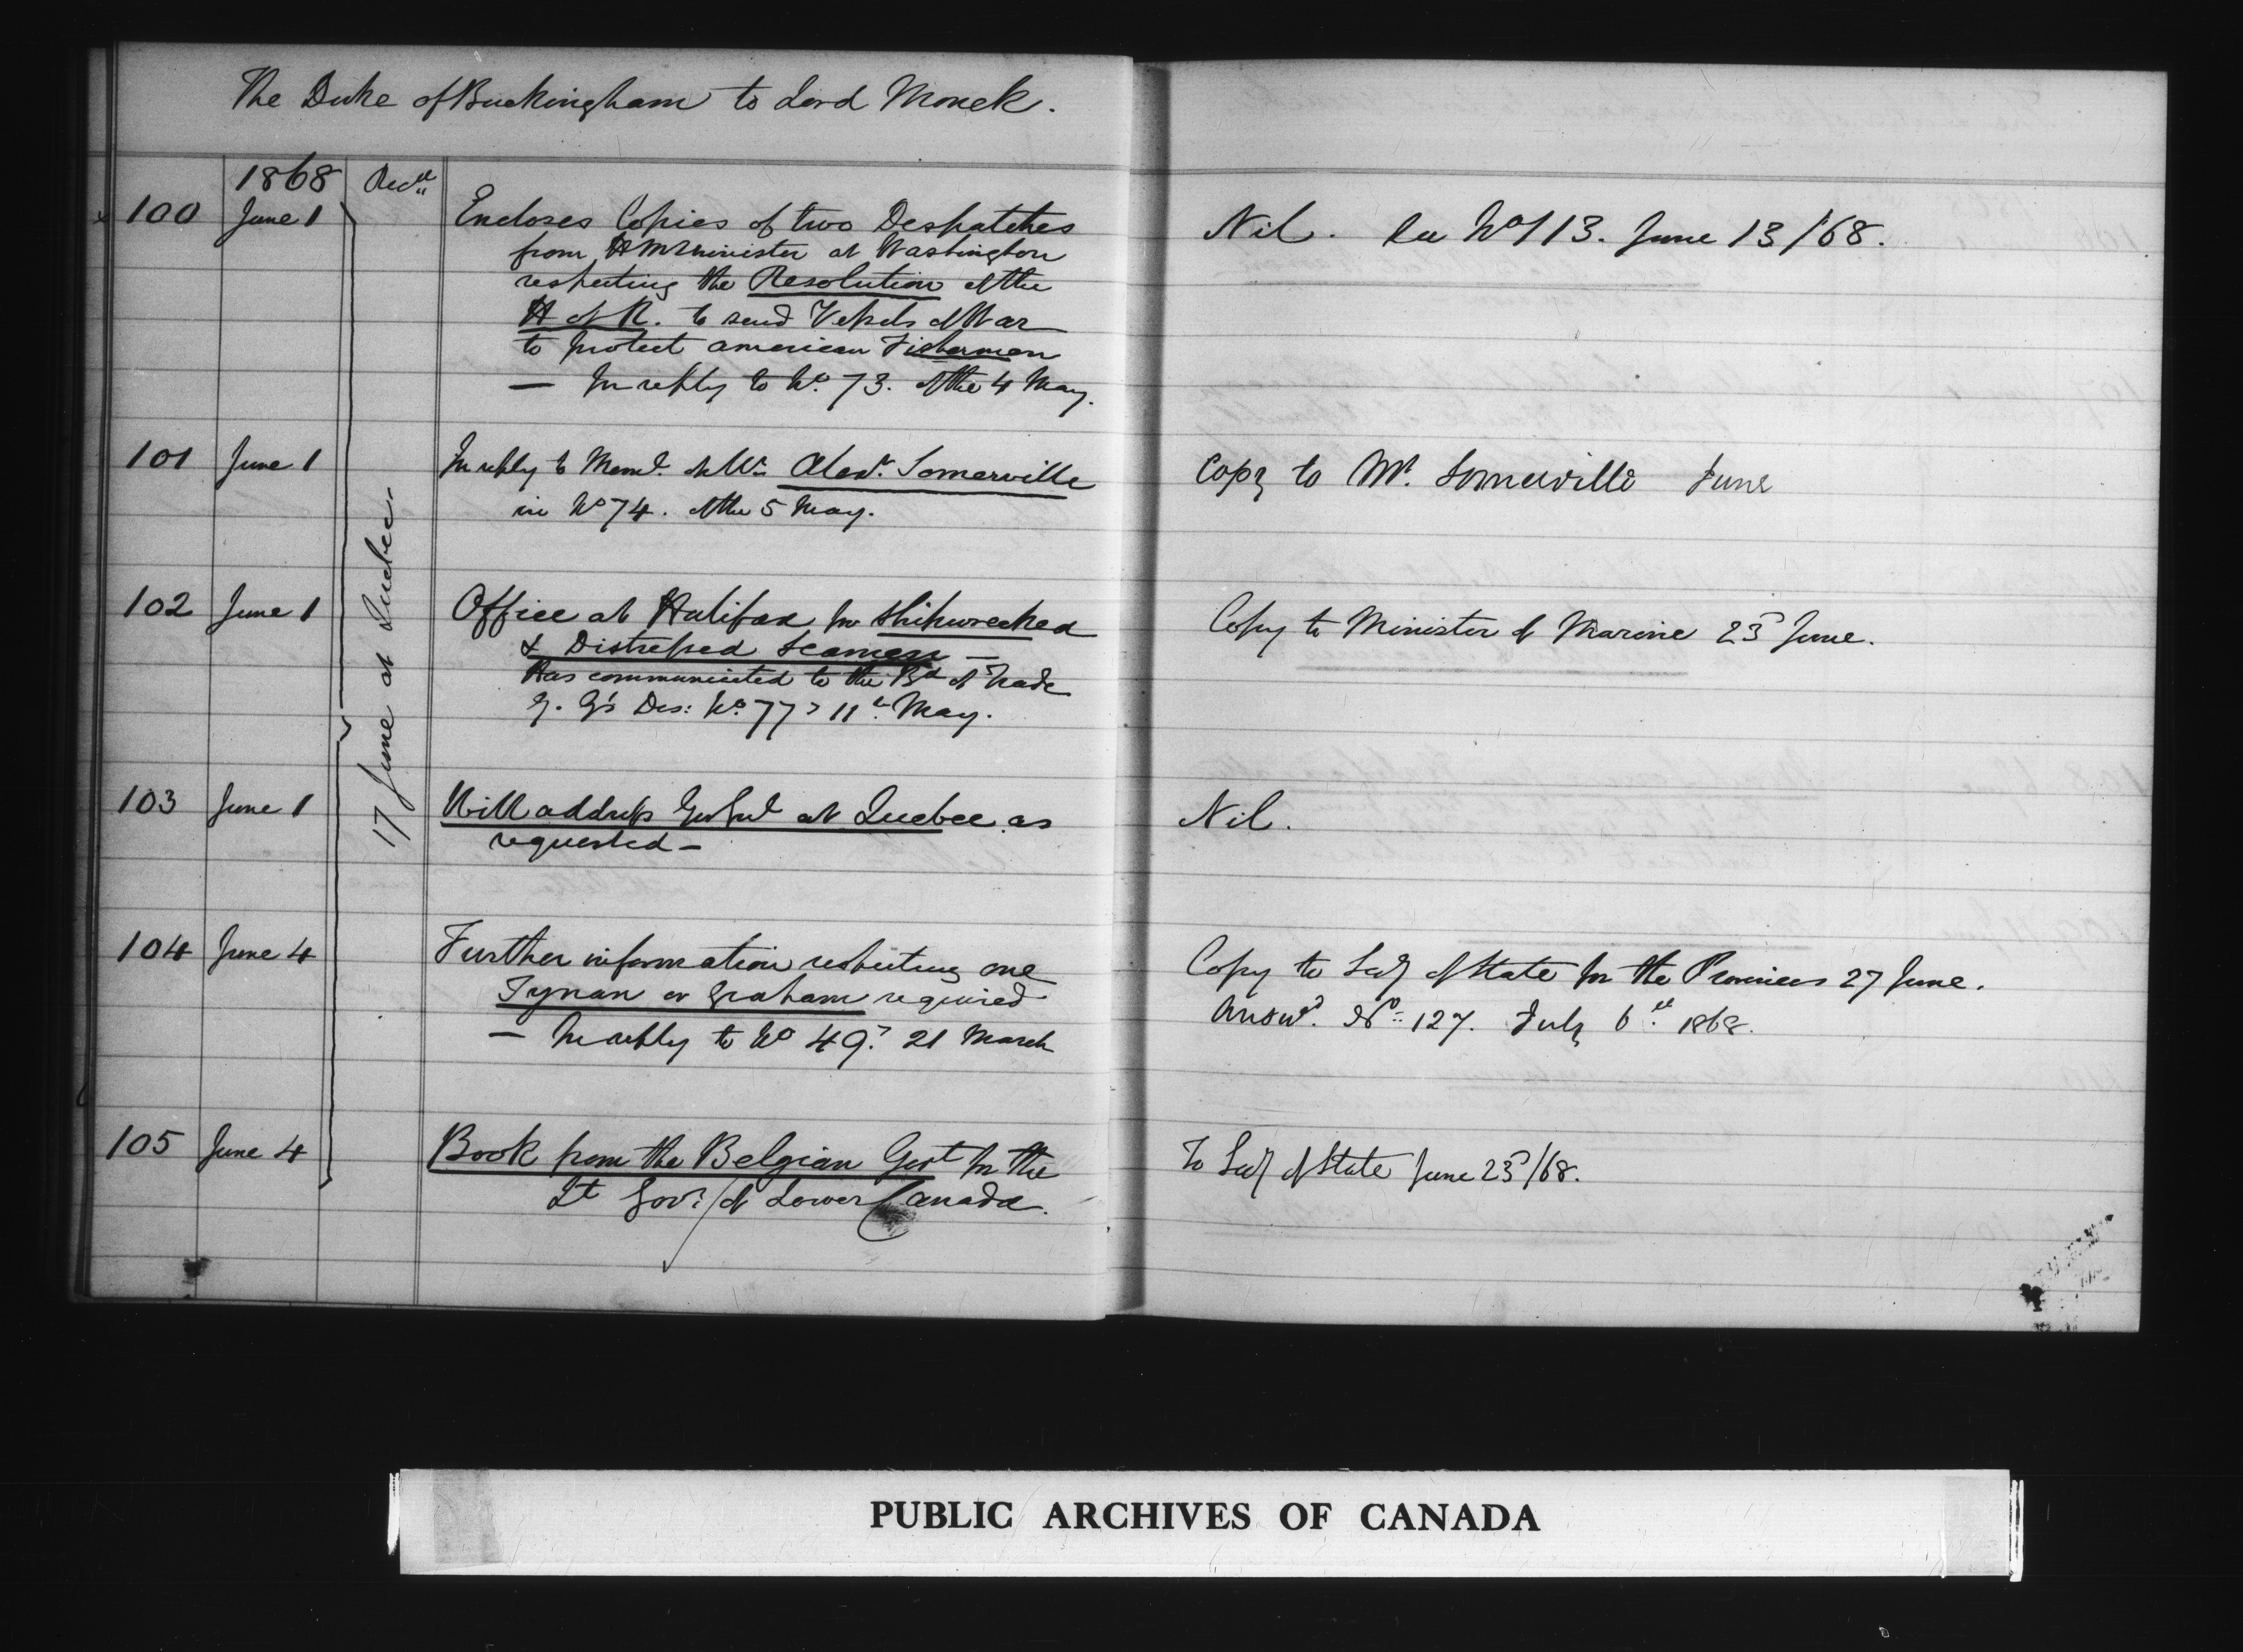 The Duke of Buckingham to Lord Monck.
1868 Recd
100 June 1 Encloses Copies of two Despatches
from H M Minister at Washington
respecting the Resolution of the
H of R. to send Vessels of War
to protect american Fishermen
— In reply to No. 73. of the 4 May.
Nil. See No 113. June 13/68.
17 June at Quebec
101 June 1 In reply to Meml. of Mr. Alexr. Somerville
in No 74. of the 5 May.
Copy to Mr. Somerville June
102 June 1 Office at Halifax for Shipwrecked
& Distressed Seamen —
Has communicated to the Bd of Trade
G. G's Des: No. 77, 11th May.
Copy to Minister of Marine 23d June.
103 June 1 Will address Gov Genl at Quebec as
requested —
Nil.
104 June 4 Further information respecting one
Tynan or Graham required
— In reply to No 49. 21 March
Copy to Secy of State for the Provinces 27 June.
Answd. No. 127. July 6th. 1868.
105 June 4 Book from the Belgian Govt for the
Lt Govr. of Lower Canada.
To Secy of State June 23d/68.
PUBLIC ARCHIVES OF CANADA